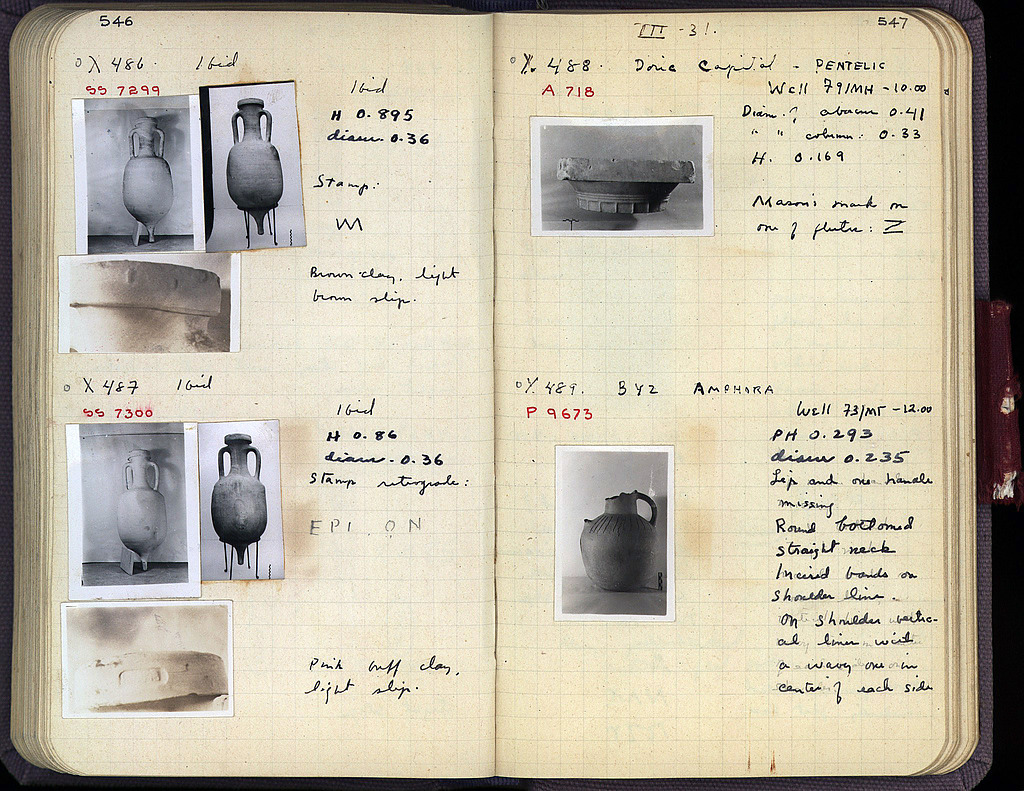 546
X 486 Ibid
SS 7299
Ibid
H 0.895
diam 0.36
Stamp:
Brown clay, light
brown slip.
X 487 Ibid
SS 7300
Ibid
H 0.86
diam. 0.36
Stamp retrograde:
EPI ON
Pink buff clay,
light slip.
547
III -31.
488. Doric Capital - PENTELIC
A 718
Well 79/MH -10.00
Diam. of abacus 0.41
" " column: 0.33
H. 0.169
Mason's mark on
one of flutes: Z
489. BYZ AMPHORA
P 9673
Well 73/MT -12.00
PH 0.293
diam 0.235
Lip and one handle
missing
Round bottomed
straight neck
Incised bands on
shoulder line.
On shoulder vertic-
al lines with
a wavy one in
center of each side